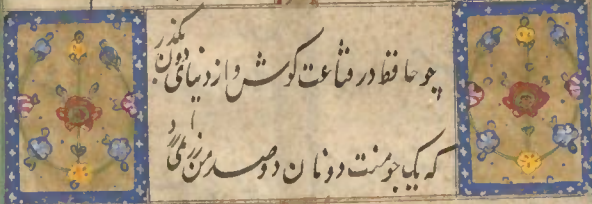 چو حافظ در قناعت کوش و از دنیای دون بگذر
که یک جو منت دونان دو صد من زر نمی‌ارزد